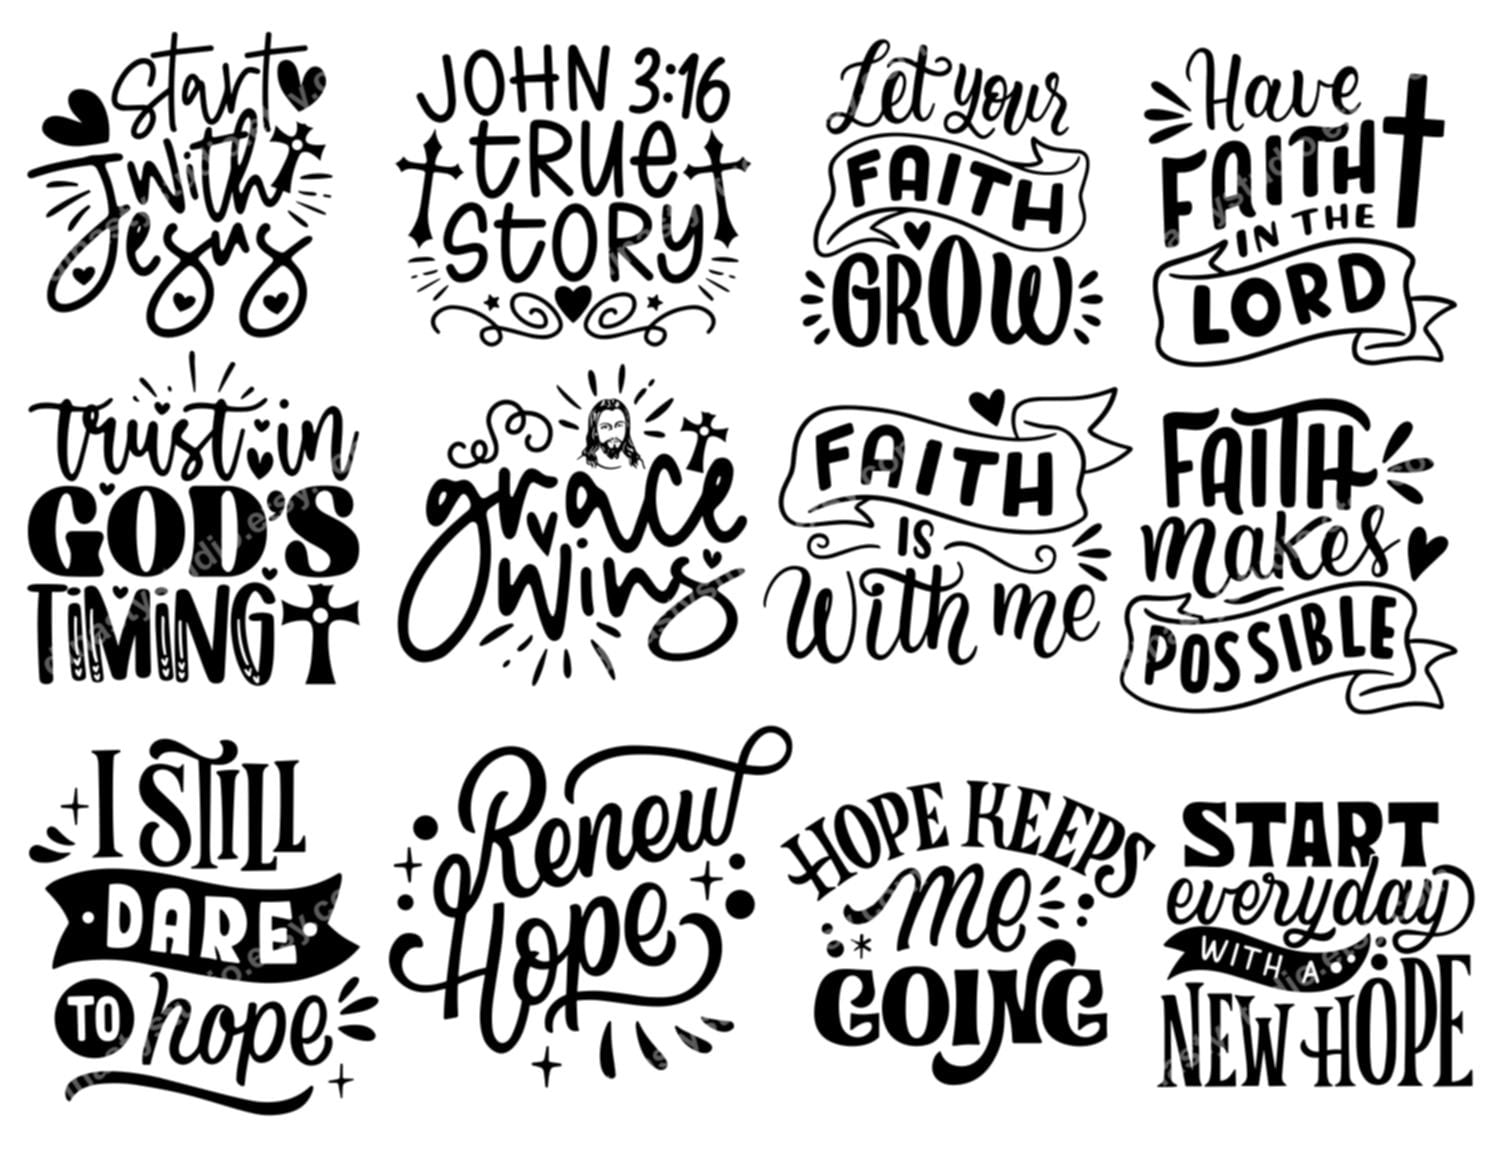 start
with
Jesus
JOHN 3:16
tRUe
StORy
Let your
FAITH
GROW
Have
FAITH
IN THE
LORD
trust in
GOD'S
TiMiNG
grace
wins
FAITH
IS
With me
FAITH
makes
POSSIBLE
I STILL
DARE
TO hope
Renew
Hope
HOPE KEEPS
me
GOING
START
everyday
WITH A
NEW HOPE